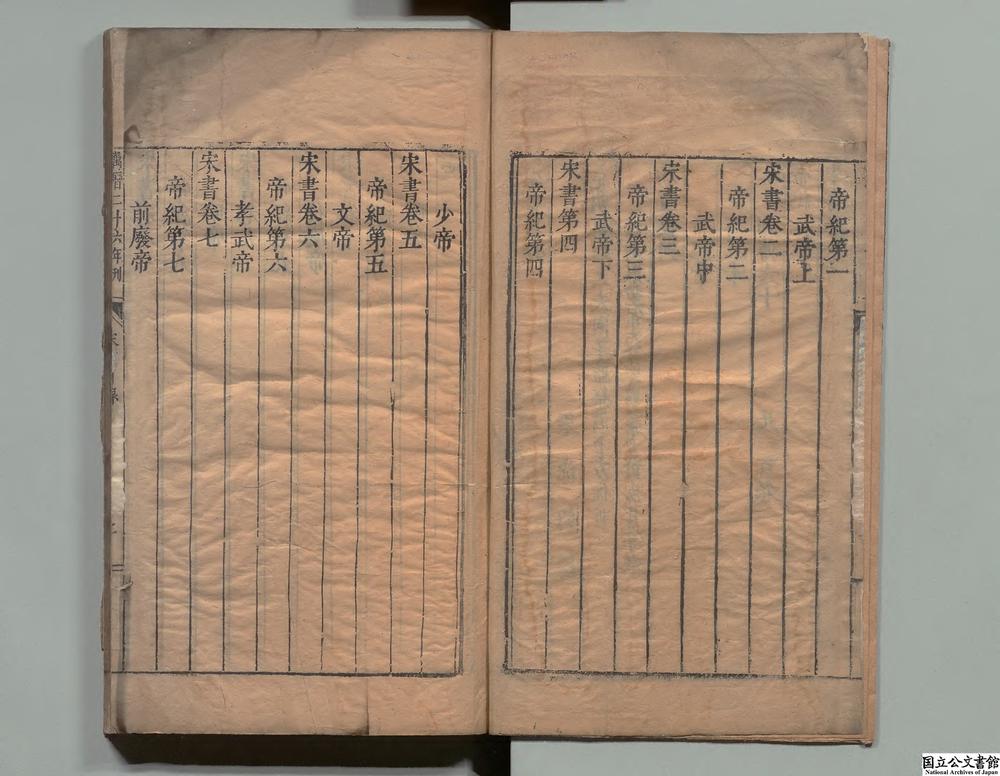 帝紀第一
武帝上
宋書卷二
帝紀第二
武帝中
宋書卷三
帝紀第三
武帝下
宋書第四
帝紀第四
少帝
宋書卷五
帝紀第五
文帝
宋書卷六
帝紀第六
孝武帝
宋書卷七
帝紀第七
前廢帝
萬曆二十六年刊
国立公文書館
National Archives of Japan